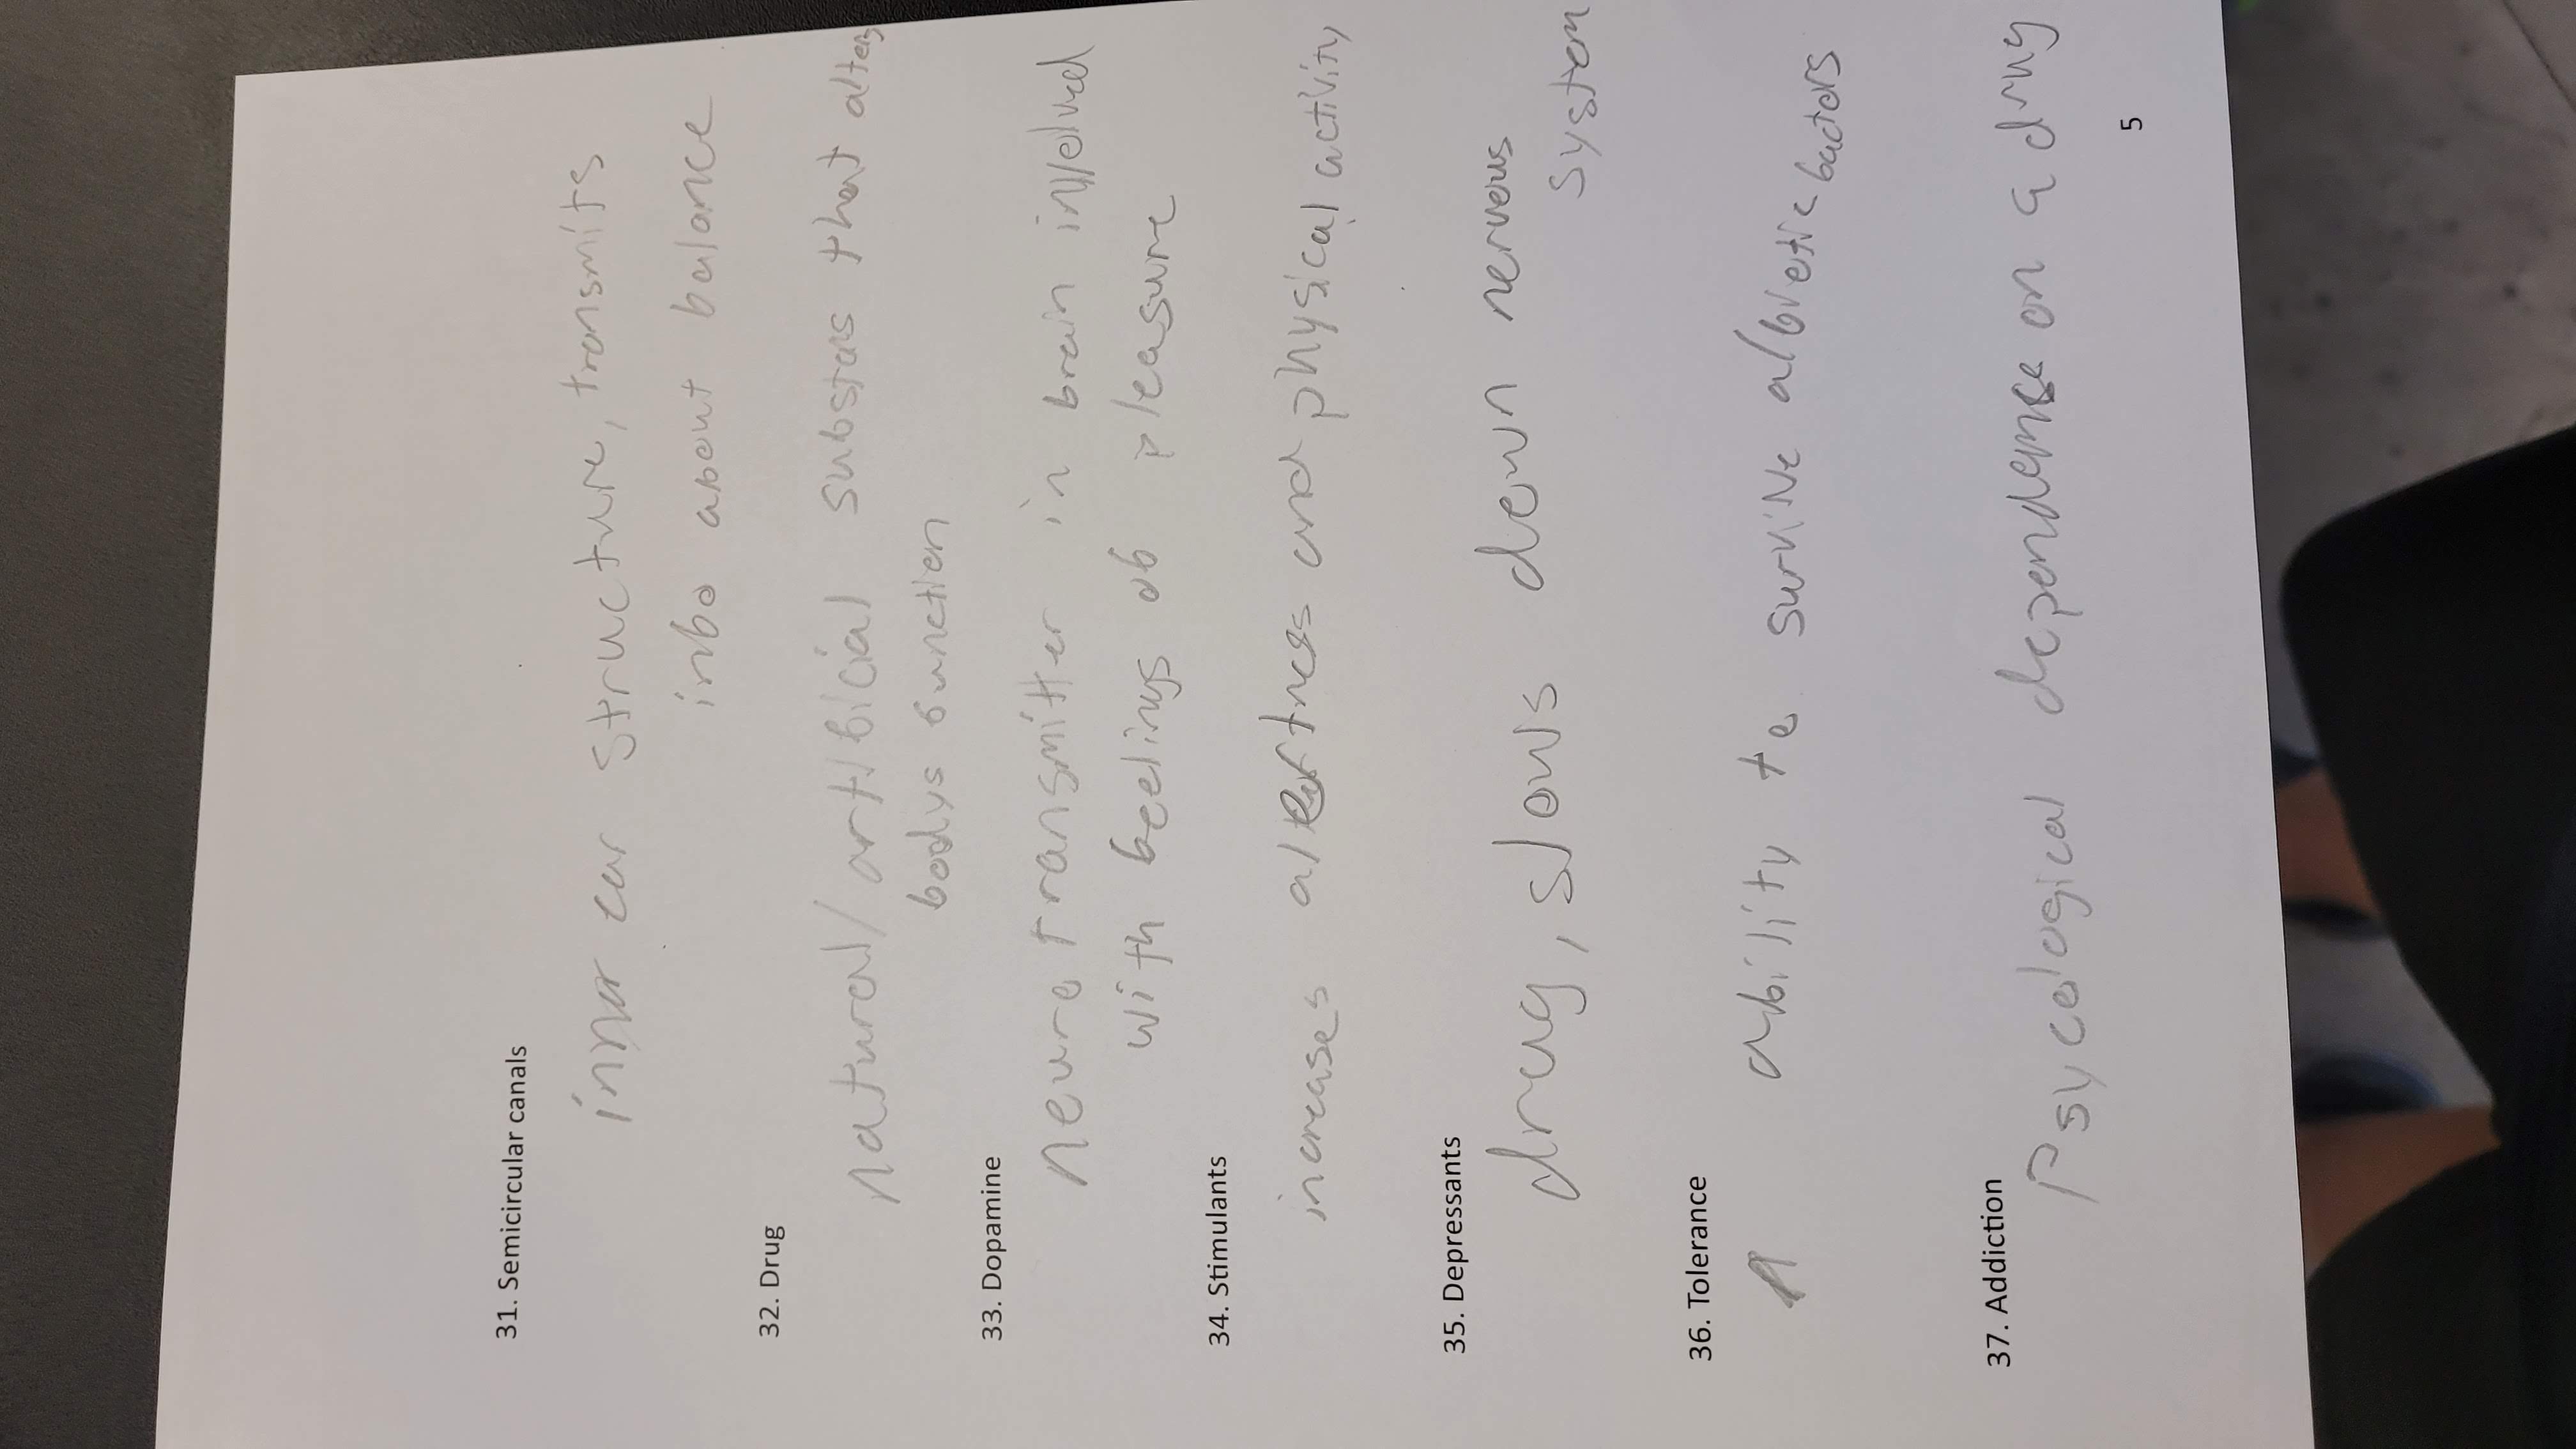 31. Semicircular canals
inner ear structure, transmits
info about balance
32. Drug
natural/artificial substans that alters
bodys function
33. Dopamine
neurotransmitter in brain involved
with feelings of pleasure
34. Stimulants
increases alertness and physical activity
35. Depressants
drug, slows down nervous
system
36. Tolerance
ability to survive factors
37. Addiction
Psycological dependense on a drug
5